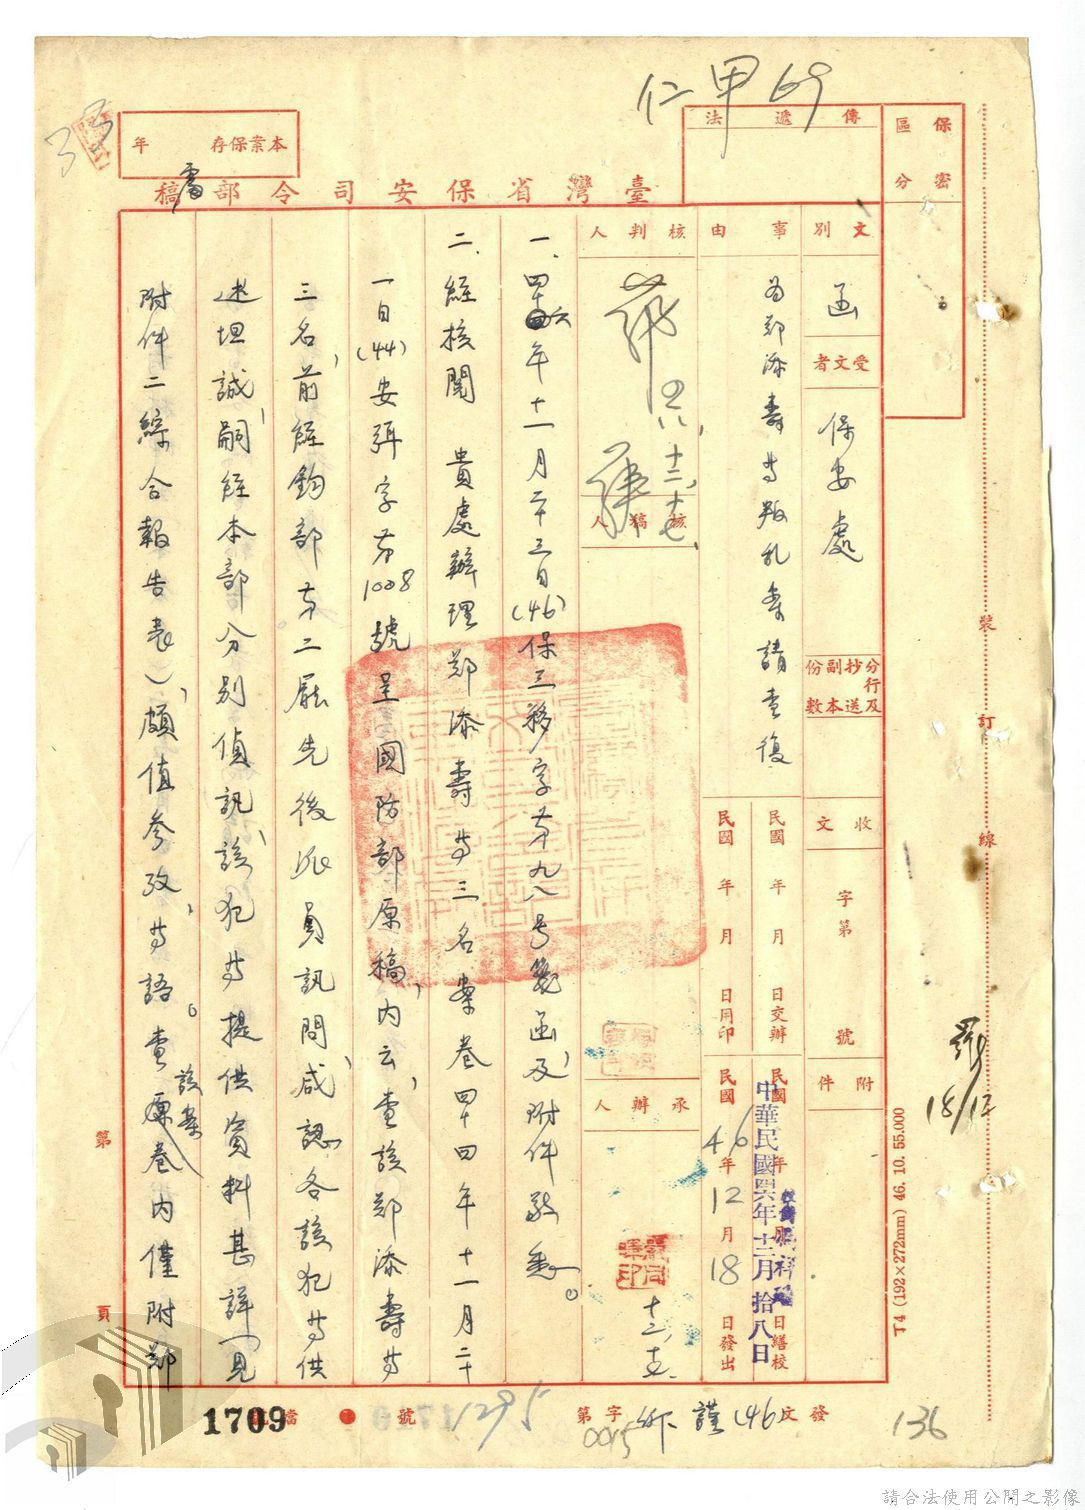 仁甲69
保密
區分
傳遞法
本案保存
年
臺灣省保安司令部處稿
文別
函
受文者
保安處
分行及抄送副本份數
收文
字第
號
附件
事由
為鄭添壽等叛乱案請查復
民國 年 月 日交辦
民國 年 月 日繕校
民國 年 月 日用印
民國46年12月18日發出
中華民國四六年十二月拾八日
核判人
核稿人
十二、十七、
承辦人
十二、
一、四十六年十一月二十三日(46)保三移字第九八号箋函及附件敬悉。
二、經核閱 貴處辦理鄭添壽等三名案卷四十四年十一月二十
一日(44)安珥字第1008號呈國防部原稿內云,查該鄭添壽等
三名,前經鈞部第二廳先後派員訊問,咸認各該犯等供
述坦誠,嗣經本部分別偵訊,該犯等提供資料甚詳(見
附件二綜合報告表),頗值參攷,等語。查該案原卷內僅附鄭
第 頁
裝
訂
線
18/12
T4 (192×272mm) 46. 10. 55.000
發文(46)謹
字第
0015
1295
號
檔
1709
136
請合法使用公開之影像